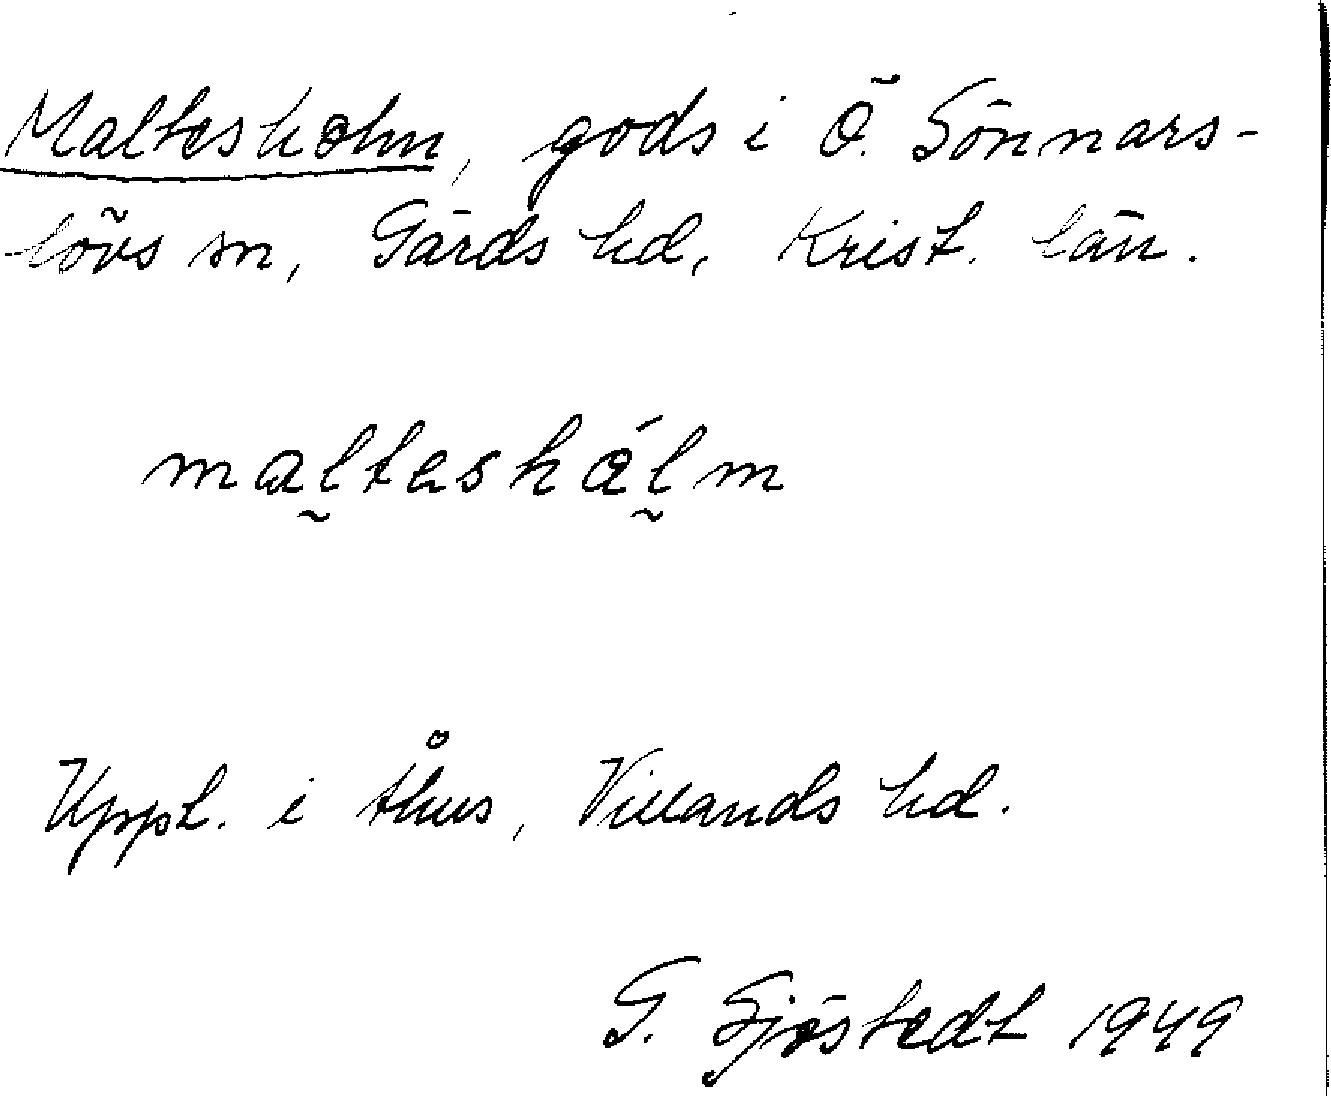 Maltesholm, gods i Ö. Sönnars-
lövs sn, Gärds hd, Krist. län.
malteshålm
Uppt. i Åhus, Villands hd.
G. Sjöstedt 1949